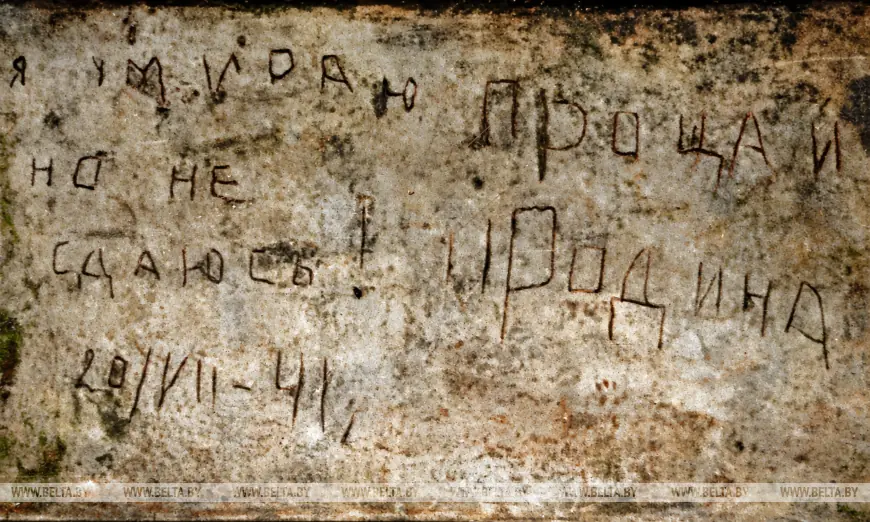 Я УМИРАЮ
НО НЕ
СДАЮСЬ!
20/VII-41
ПРОЩАЙ
РОДИНА
WWW.BELTA.BY WWW.BELTA.BY WWW.BELTA.BY WWW.BELTA.BY WWW.BELTA.BY WWW.BELTA.BY WWW.BELTA.BY WWW.BELTA.BY